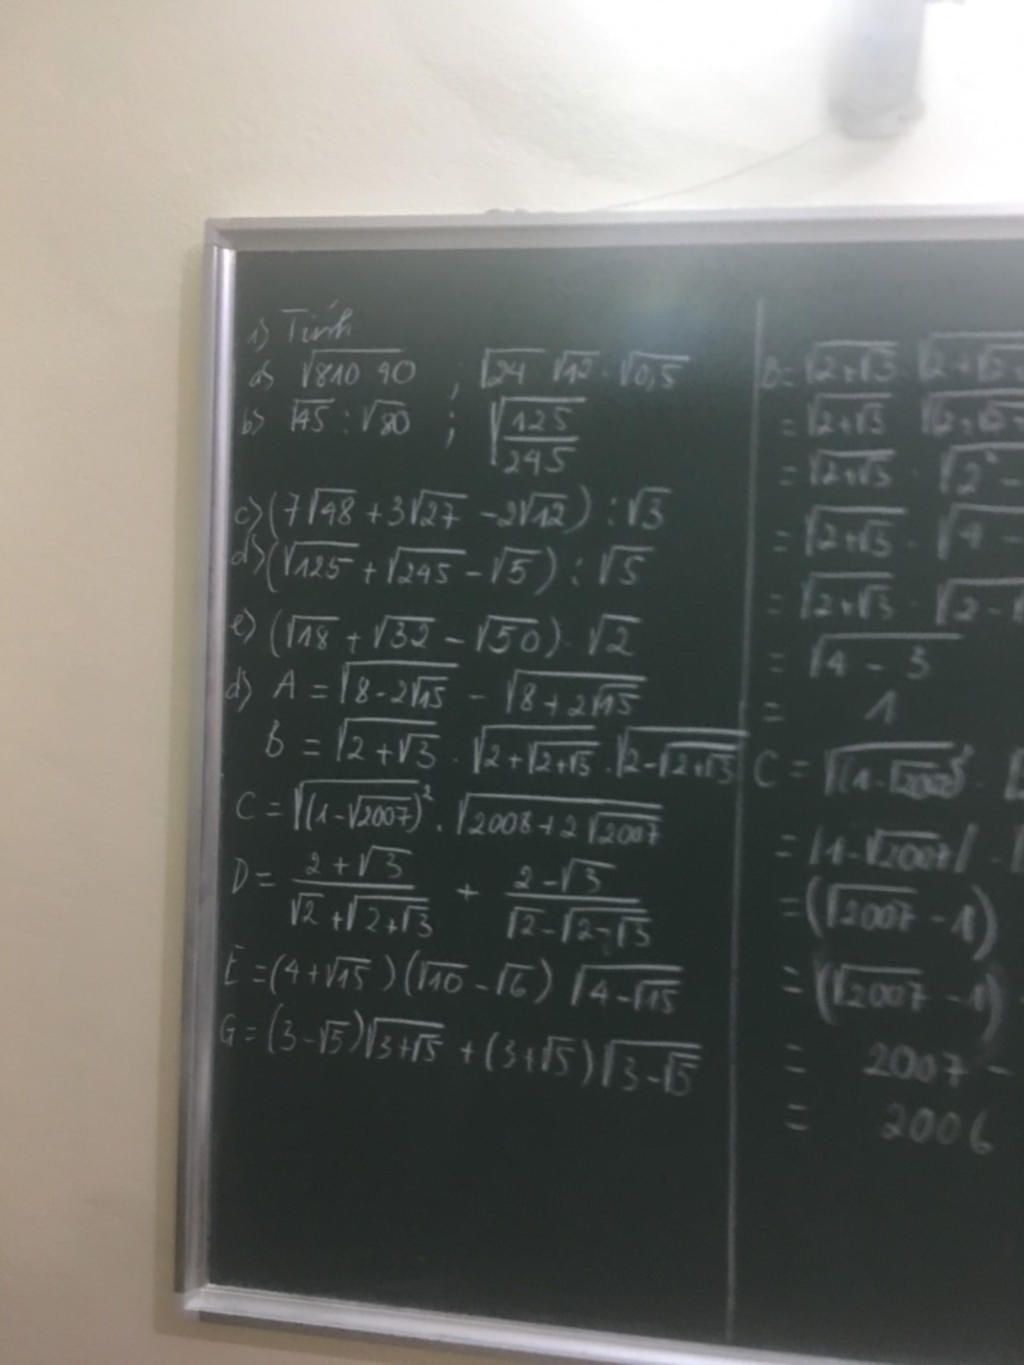 1) Tính
a) √810 40 ; √24 √12 . √0,5
b) √45 : √80 ; √(125/245)
c) (7√48 + 3√27 - 2√12) : √3
d) (√125 + √245 - √5) : √5
e) (√18 + √32 - √50) . √2
d) A = √(8 - 2√15) - √(8 + 2√15)
B = √(2 + √3) . √(2 + √(2 + √3)) . √(2 - √(2 + √3))
C = √((1 - √2007)²) . √(2008 + 2√2007)
D = (2 + √3)/(√2 + √(2 + √3)) + (2 - √3)/(√2 - √(2 - √3))
E = (4 + √15)(√10 - √6) √(4 - √15)
G = (3 - √5)√(3 + √5) + (3 + √5)√(3 - √5)
B = √(2 + √3) √(2 + √(2 +
= √(2 + √3) √(2 + √(2 +
= √(2 + √3) . √(2² -
= √(2 + √3) . √(4 -
= √(2 + √3) . √(2 - √
= √(4 - 3)
= 1
C = √((1 - √2007)²) . √
= |1 - √2007| . √
= (√2007 - 1)
= (√2007 - 1) .
= 2007 -
= 2006